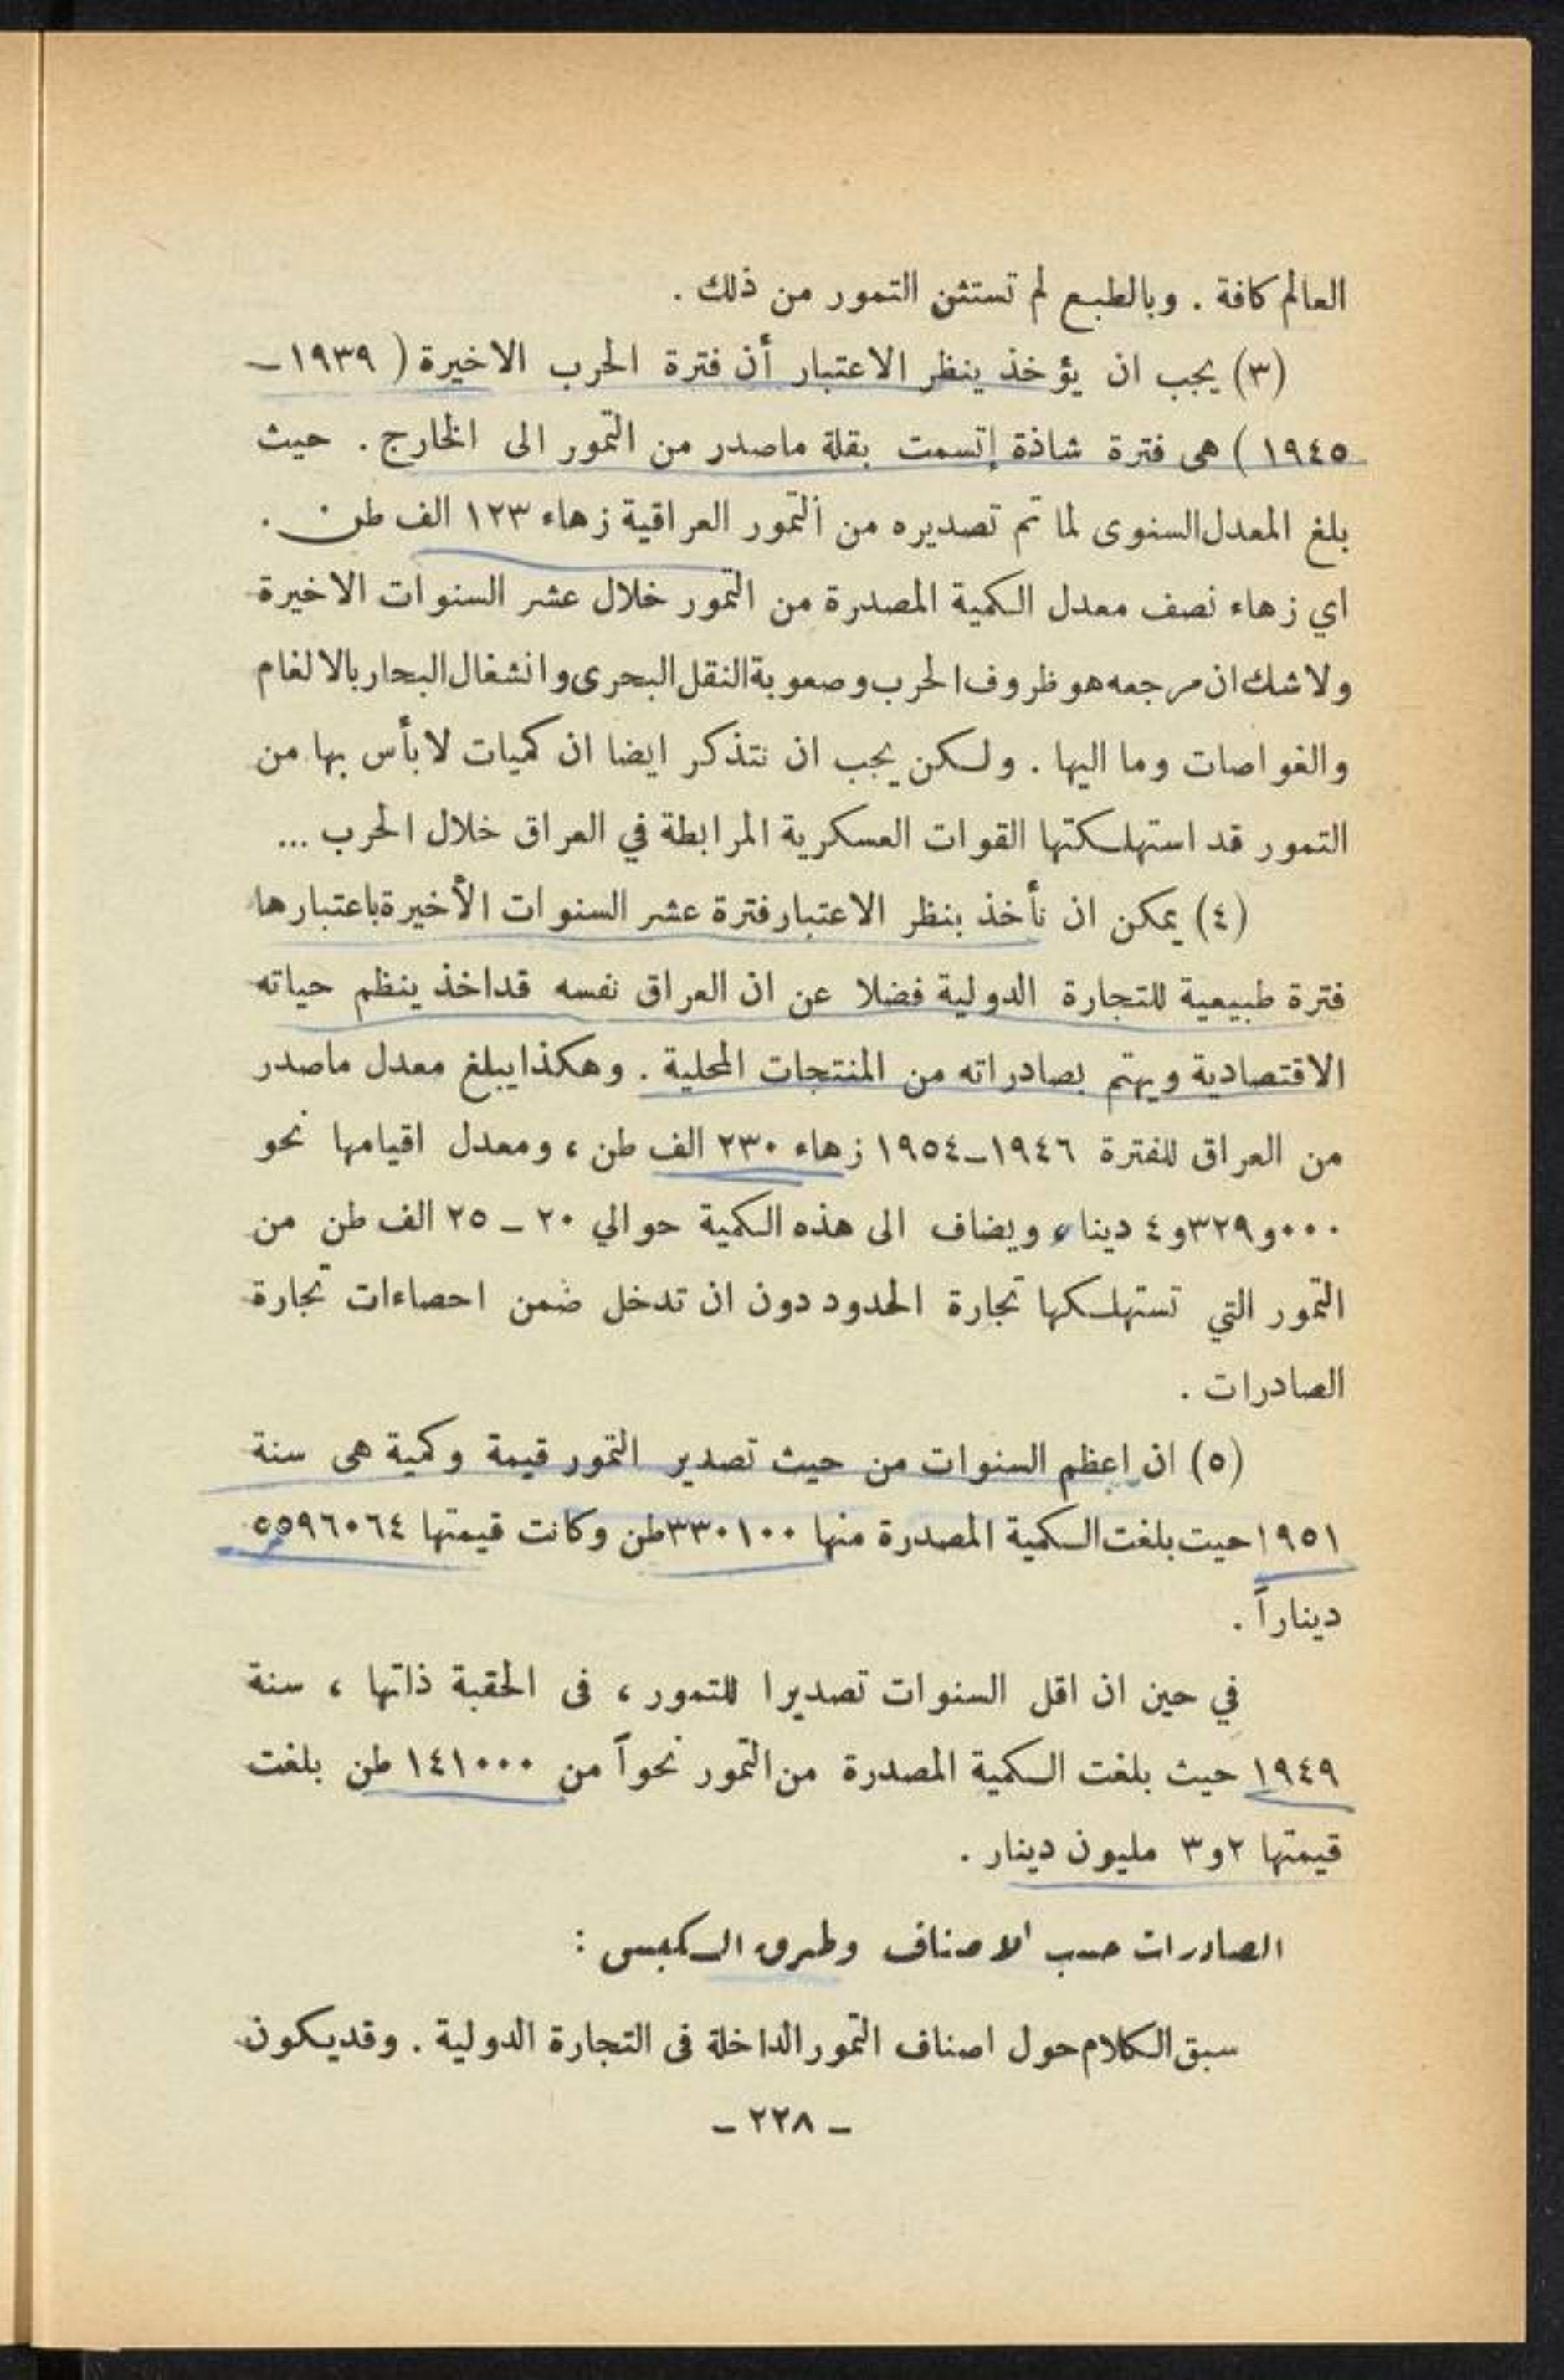 العالم كافة . وبالطبع لم تستثن التمور من ذلك .
(٣) يجب ان يؤخذ ينظر الاعتبار أن فترة الحرب الاخيرة ( ١٩٣٩ –
١٩٤٥ ) هى فترة شاذة إتسمت بقلة ماصدر من التمور الى الخارج . حيث
بلغ المعدل السنوى لما تم تصديره من التمور العراقية زهاء ١٢٣ الف طن .
اي زهاء نصف معدل الكمية المصدرة من التمور خلال عشر السنوات الاخيرة
ولاشك ان مرجعه هو ظروف الحرب وصعوبة النقل البحرى وانشغال البحار بالالغام
والغواصات وما اليها . ولكن يجب ان نتذكر ايضا ان كميات لابأس بها من
التمور قد استهلكتها القوات العسكرية المرابطة في العراق خلال الحرب ...
(٤) يمكن ان نأخذ بنظر الاعتبار فترة عشر السنوات الأخيرة باعتبارها
فترة طبيعية للتجارة الدولية فضلا عن ان العراق نفسه قد اخذ ينظم حياته
الاقتصادية ويهتم بصادراته من المنتجات المحلية . وهكذا يبلغ معدل ماصدر
من العراق للفترة ١٩٤٦–١٩٥٤ زهاء ٢٣٠ الف طن ، ومعدل اقيامها نحو
٠٠٠و٣٢٩و٤ دينار ويضاف الى هذه الكمية حوالي ٢٠ – ٢٥ الف طن من
التمور التي تستهلكها تجارة الحدود دون ان تدخل ضمن احصاءات تجارة
الصادرات .
(٥) ان اعظم السنوات من حيث تصدير التمور قيمة وكمية هى سنة
١٩٥١ حيت بلغت الكمية المصدرة منها ٣٣٠١٠٠ طن وكانت قيمتها ٥٥٩٦٠٦٤
ديناراً .
في حين ان اقل السنوات تصديرا للتمور ، فى الحقبة ذاتها ، سنة
١٩٤٩ حيث بلغت الكمية المصدرة من التمور نحواً من ١٤١٠٠٠ طن بلغت
قيمتها ٢و٣ مليون دينار .
الصادرات حسب الاصناف وطرق الكبس :
سبق الكلام حول اصناف التمور الداخلة فى التجارة الدولية . وقد يكون
– ٢٢٨ –